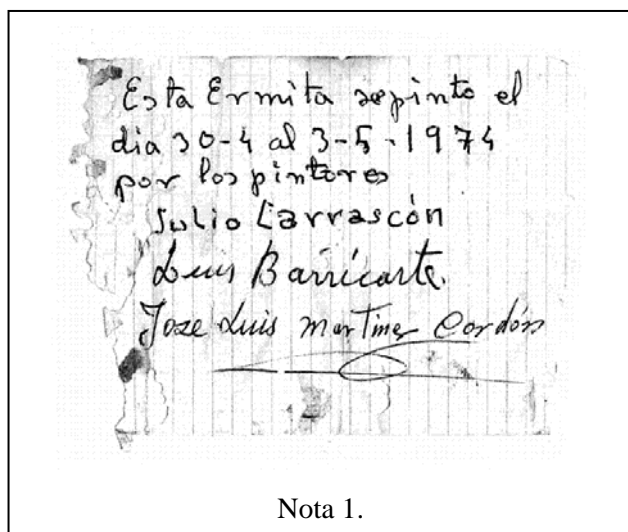 Esta Ermita sepinto el
dia 30-4 al 3-5-1974
por los pintores
Julio Carrascón
Luis Barricarte.
Joze Luis Martinez Cordón
Nota 1.